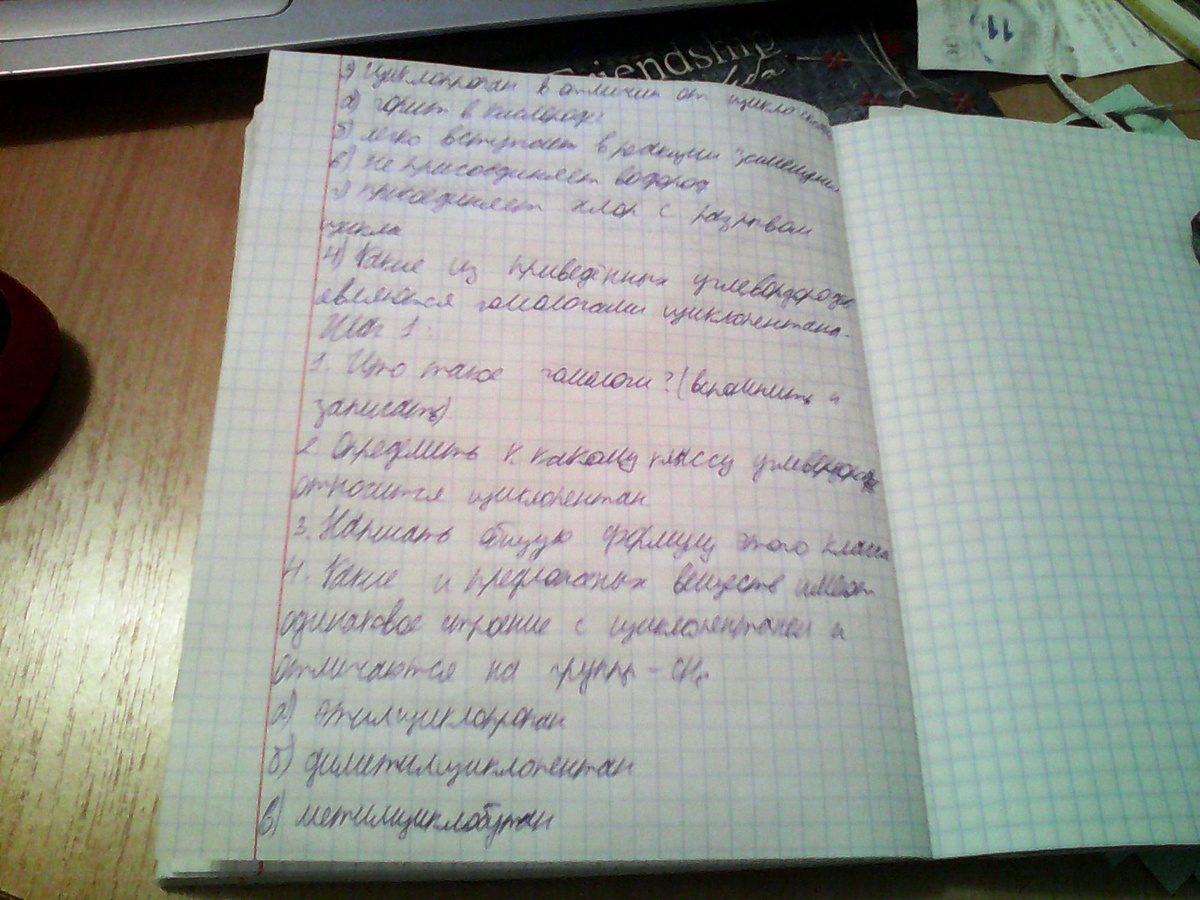 Friendship
11
3) Циклопропан в отличии от
а) горит в кислороде
б) легко вступает в реакции замещения
в) не присоединяет водород
г) присоединяет хлор с разрывом
цикла
4) Какие из приведённых углеводородов
являются гомологами циклопентана.
Шаг 1:
1. Что такое гомологи? (вспомнить и
записать)
2 Определить к какому классу
относится циклопентан
3. Написать общую формулу этого класса
4. Какие и предложеных веществ имеют
одинаковое строение с циклопентаном и
отличаются на группы - CH2
а) этилциклопропан
б) диметилциклопентан
в) метилциклобутан